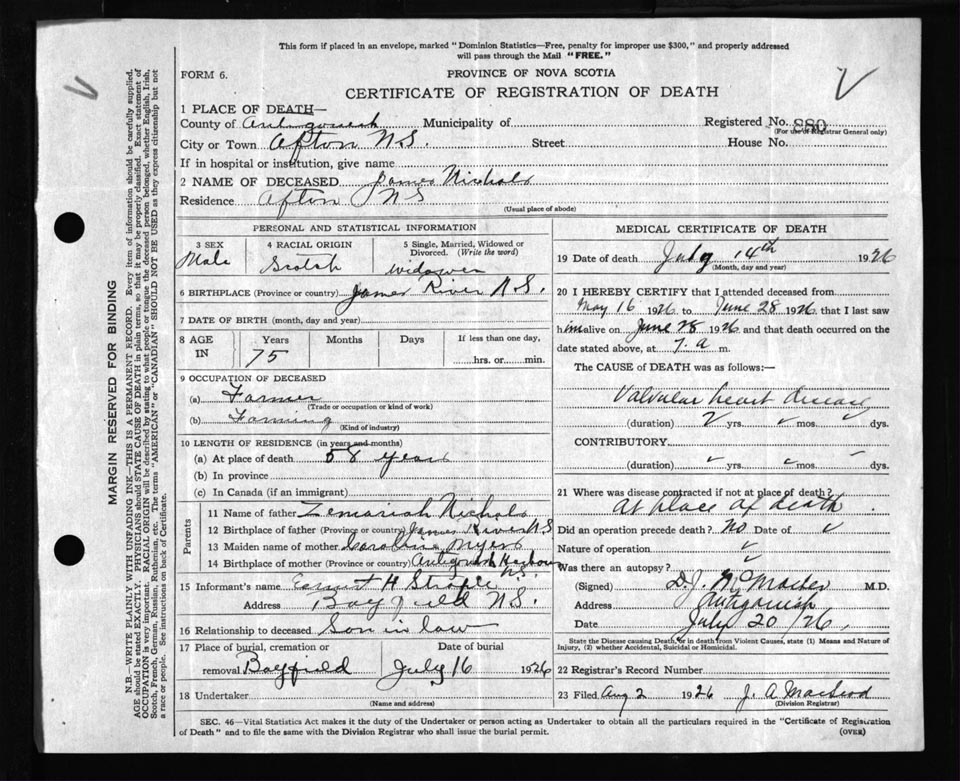 This form if placed in an envelope, marked "Dominion Statistics—Free, penalty for improper use $300," and properly addressed
will pass through the Mail "FREE."
FORM 6.
PROVINCE OF NOVA SCOTIA
CERTIFICATE OF REGISTRATION OF DEATH
1 PLACE OF DEATH—
County of Antigonish Municipality of Registered No. 880
(For use of Registrar General only)
City or Town Afton N.S. Street House No.
If in hospital or institution, give name
2 NAME OF DECEASED James Nichols
Residence Afton NS
(Usual place of abode)
PERSONAL AND STATISTICAL INFORMATION
3 SEX 4 RACIAL ORIGIN 5 Single, Married, Widowed or
Divorced. (Write the word)
Male Scotch Widower
6 BIRTHPLACE (Province or country) James River N.S.
7 DATE OF BIRTH (month, day and year)
8 AGE IN Years Months Days If less than one day,
75 hrs. or min.
9 OCCUPATION OF DECEASED
(a) Farmer
(Trade or occupation or kind of work)
(b) Farming
(Kind of industry)
10 LENGTH OF RESIDENCE (in years and months)
(a) At place of death 58 years
(b) In province
(c) In Canada (if an immigrant)
Parents
11 Name of father Zemariah Nichols
12 Birthplace of father (Province or country) James River N.S.
13 Maiden name of mother Caroline Myers
14 Birthplace of mother (Province or country) Antigonish Harbour
N.S.
15 Informant's name Ernest H
Address Bayfield N.S.
16 Relationship to deceased Son in law
17 Place of burial, cremation or Date of burial
removal Bayfield July 16 1926
18 Undertaker
(Name and address)
MEDICAL CERTIFICATE OF DEATH
19 Date of death July 14th 1926
(Month, day and year)
20 I HEREBY CERTIFY that I attended deceased from
May 16 1926 to June 28 1926 that I last saw
him alive on June 28 1926 and that death occurred on
date stated above, at 7. a m.
The CAUSE of DEATH was as follows:—
Valvular heart disease
(duration) yrs. mos. dys.
CONTRIBUTORY
(duration) yrs. mos. dys.
21 Where was disease contracted if not at place of death?
At place of death
Did an operation precede death? no Date of
Nature of operation
Was there an autopsy?
(Signed) D.J. M.D.
Address Antigonish
Date July 20/26
State the Disease causing Death, or in death from Violent Causes, state (1) Means and Nature of
Injury, (2) whether Accidental, Suicidal or Homicidal.
22 Registrar's Record Number
23 Filed Aug 2 1926 J. A. MacLeod
(Division Registrar)
SEC. 46—Vital Statistics Act makes it the duty of the Undertaker or person acting as Undertaker to obtain all the particulars required in the "Certificate of Registration
of Death" and to file the same with the Division Registrar who shall issue the burial permit. (OVER)
MARGIN RESERVED FOR BINDING
N.B.—WRITE PLAINLY WITH UNFADING INK—THIS IS A PERMANENT RECORD. Every item of information should be carefully supplied.
AGE should be stated EXACTLY. PHYSICIANS should STATE CAUSE OF DEATH in plain terms, so that it may be properly classified. Exact statement of
OCCUPATION is very important. RACIAL ORIGIN will be described by stating to what people or tongue the deceased person belonged, whether English, Irish,
Scotch, French, German, Russian, Ruthenian, etc. The terms "AMERICAN" or "CANADIAN" SHOULD NOT BE USED as they express citizenship but not
a race or people. See instructions on back of Certificate.